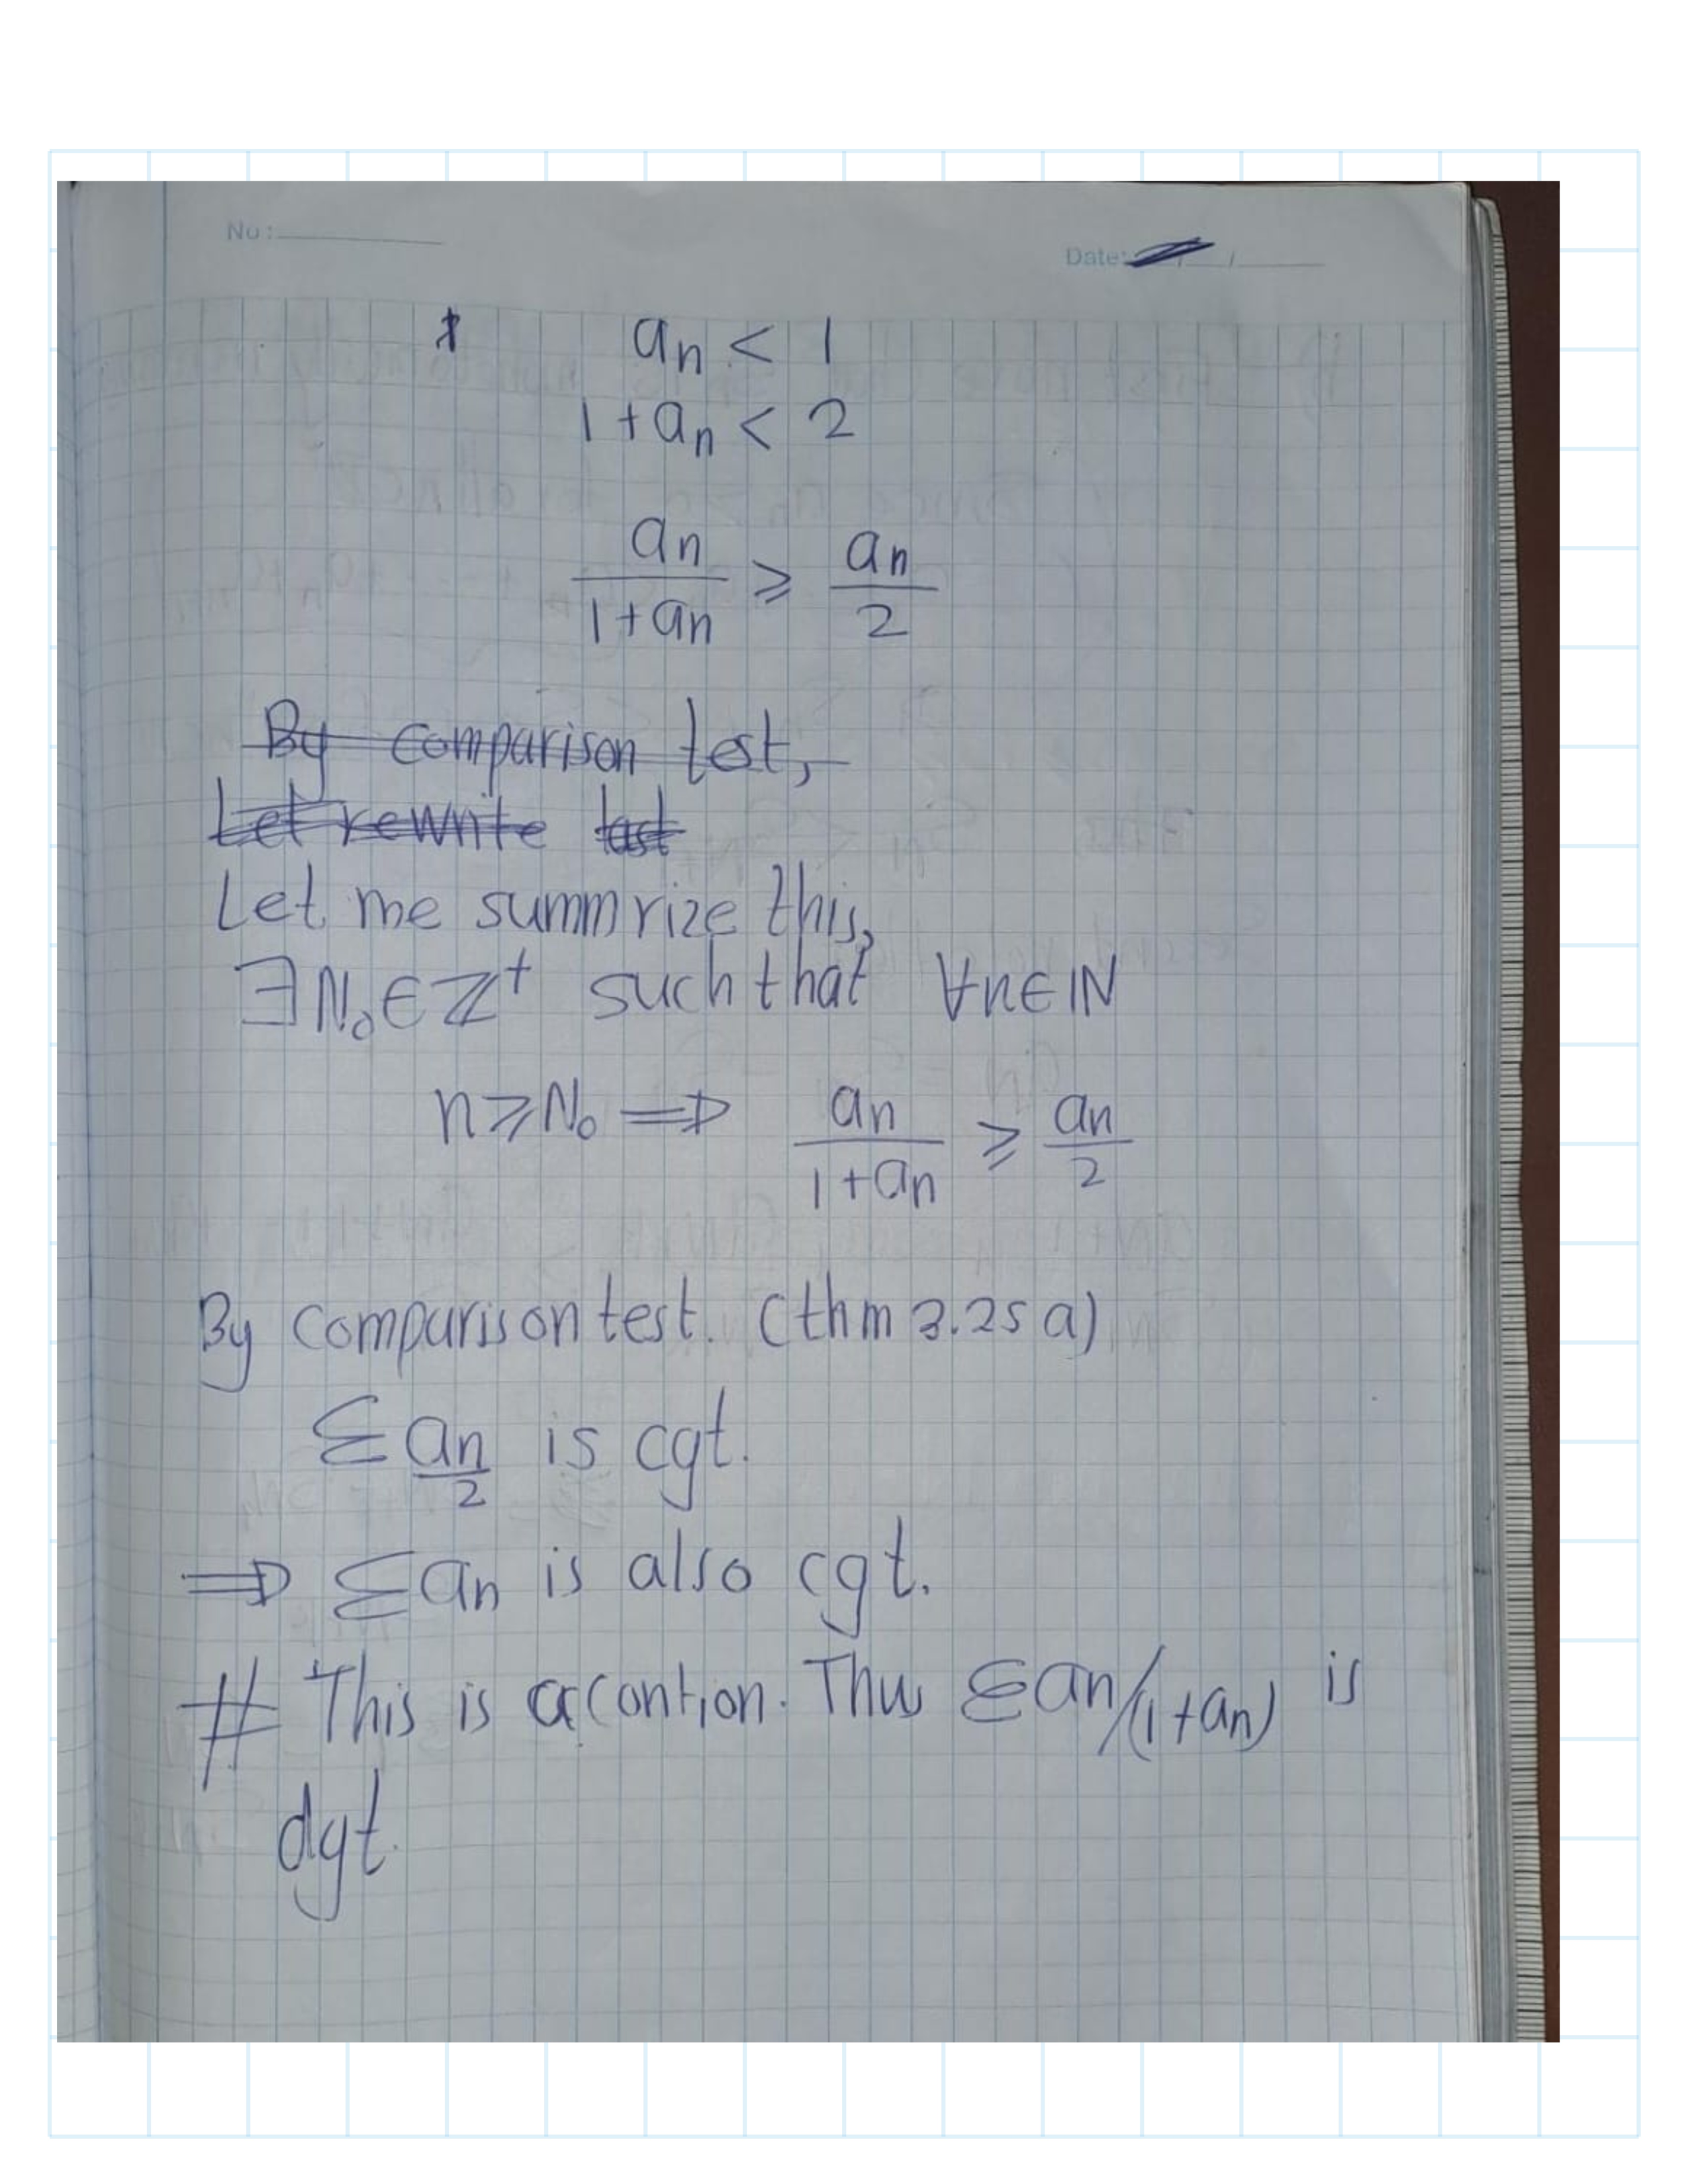 No:
Date: / /
an < 1
1 + an < 2
an/(1+an) ⩾ an/2
By comparison test,
Let rewrite last
Let me summrize this,
∃ N₀ ∈ ℤ⁺ such that ∀n∈ℕ
n ⩾ N₀ ⟹ an/(1+an) ⩾ an/2
By comparison test. (thm 3.25 a)
Σ an/2 is cgt.
⟹ Σ an is also cgt.
# This is a contion. Thus Σ an/(1+an) is
dgt.